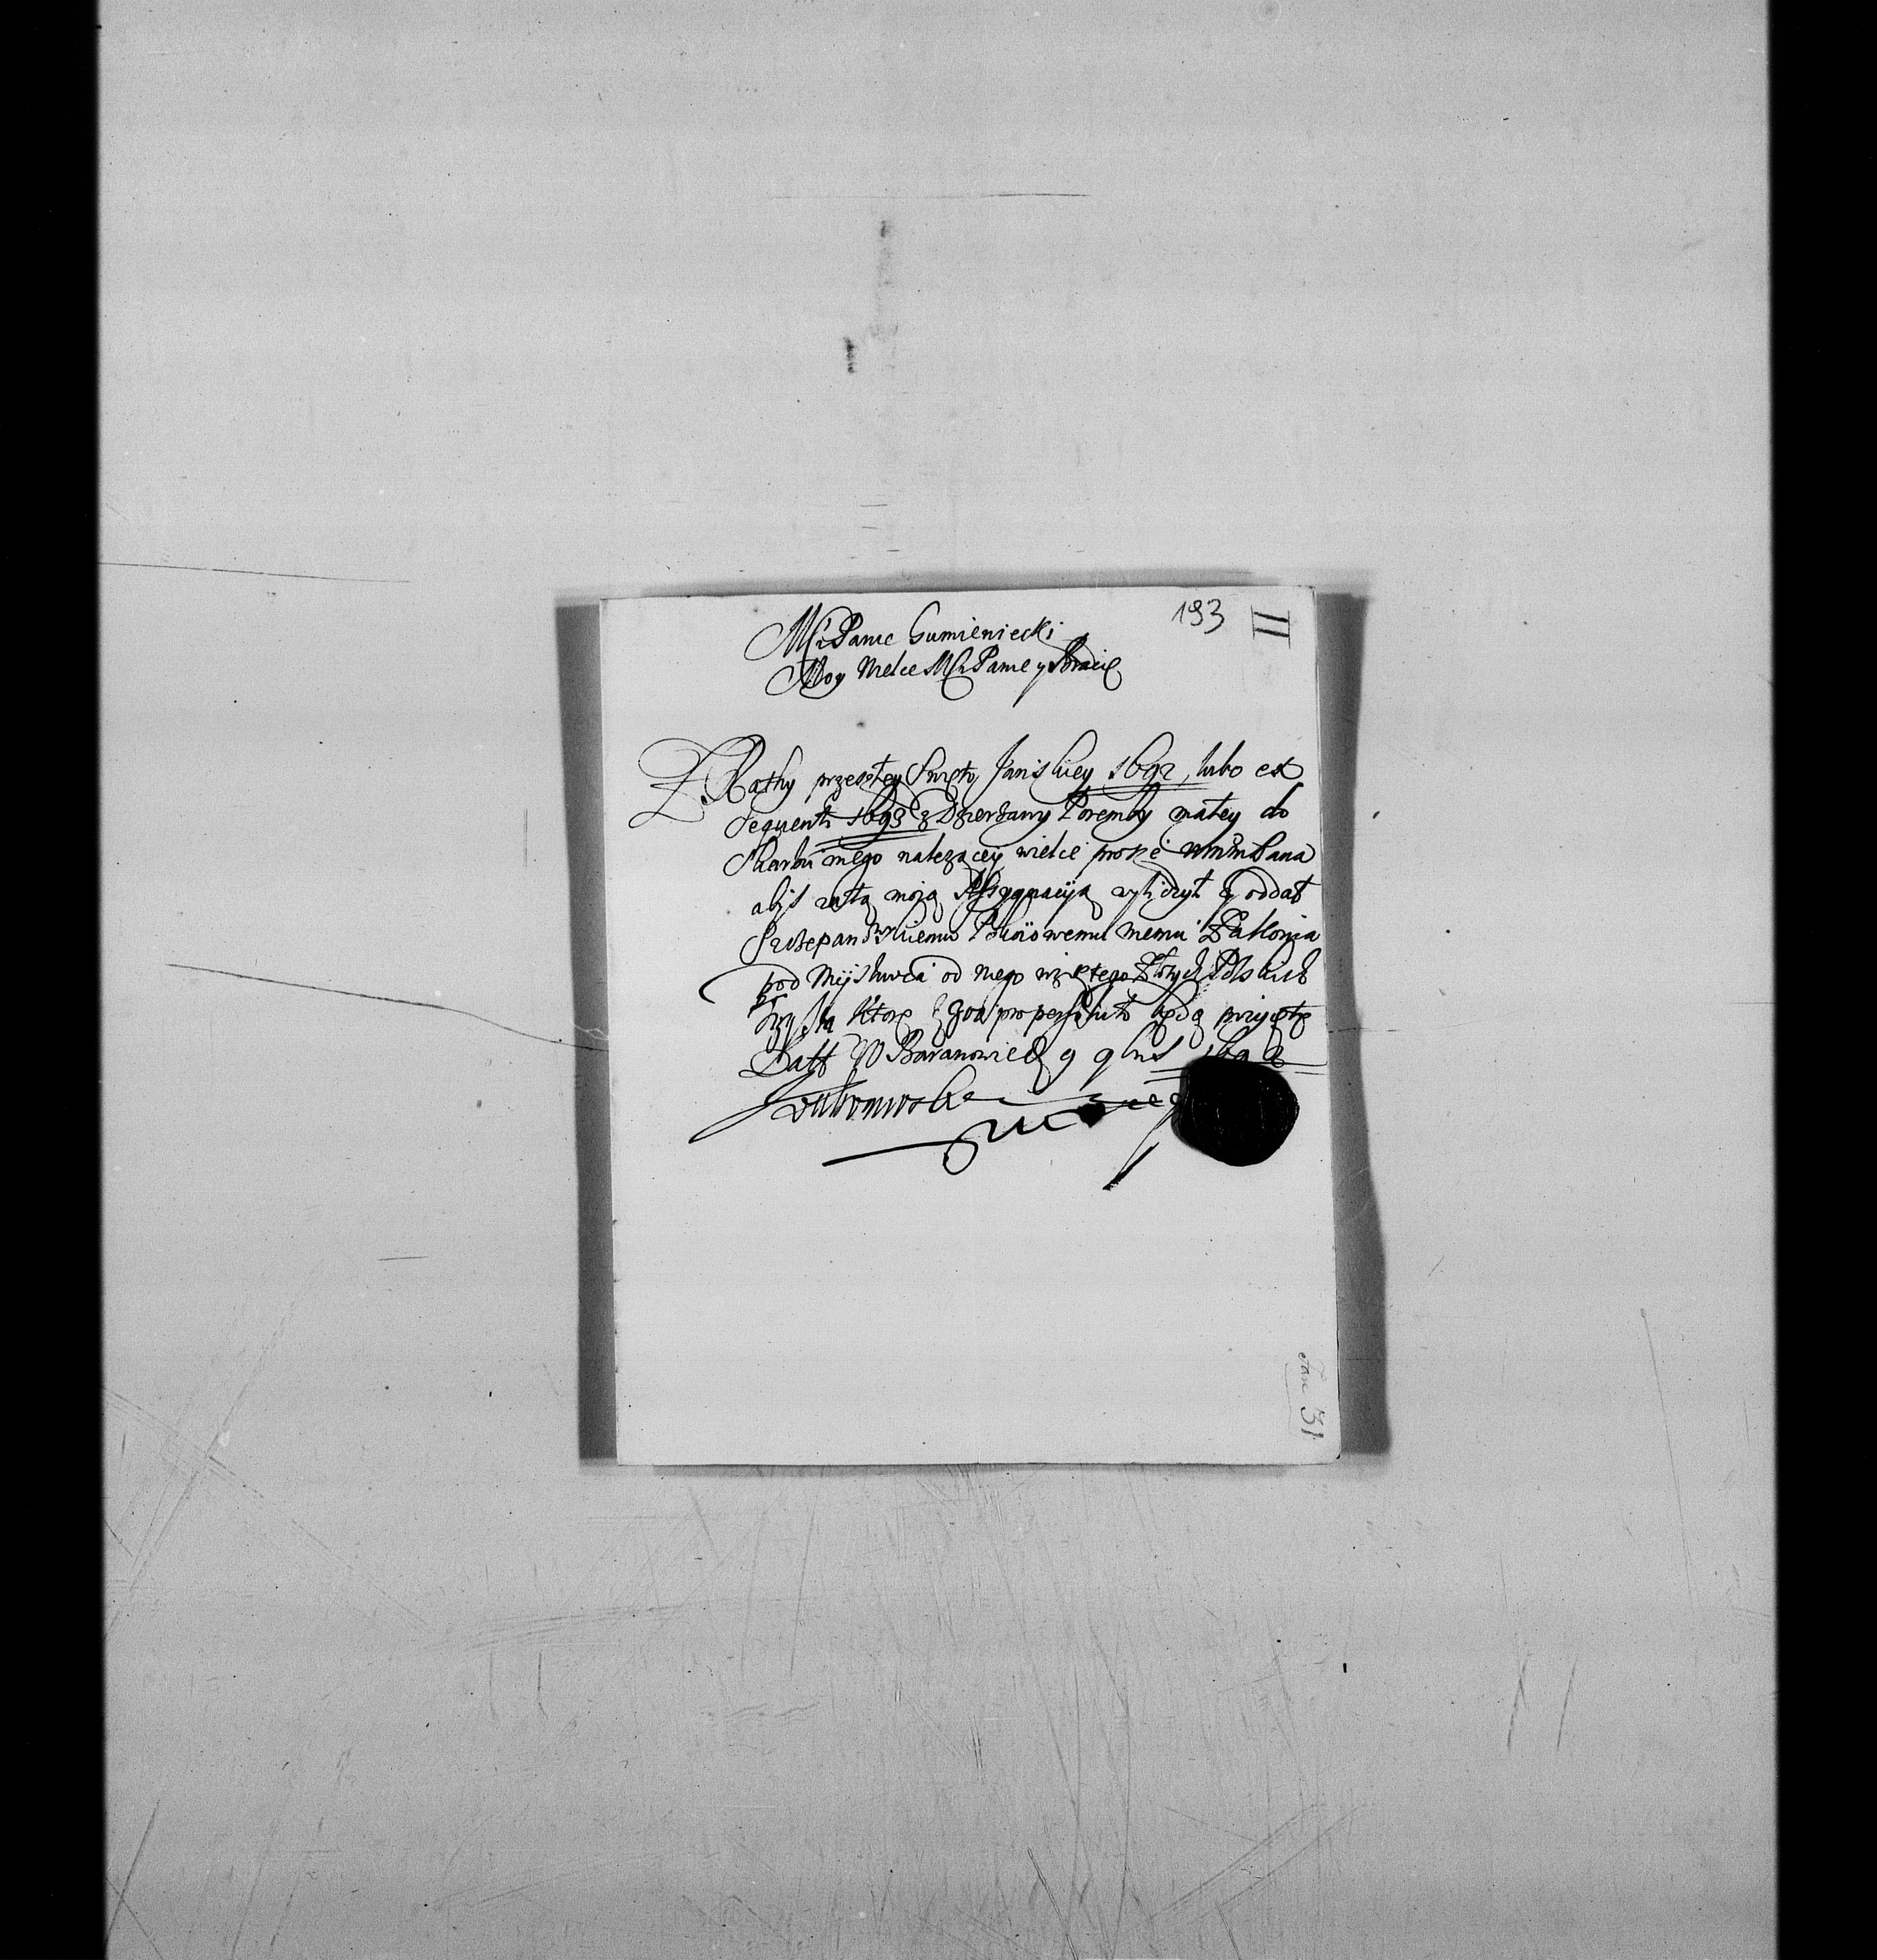 193 II
Mći Panie Gumieniecki
Moy Wielce Mći Panie y Bracie
Z Rathy przeszłey Święto Jańskiey 1692, lubo ex
sequenti 1693 z Dzierżawy Poremby małey do
Skarbu mego należącey wielce proszę WMM Pana
abyś za tą moją Assygnacyją wyliczył y oddał
Szczepanowskiemu Pokoiowemu memu Za Konia
pod Myśliwca od niego wziętego Złotych Polskich
trzysta Które pro persoluto będą przyięte
Datt W Baranowie 9 9bris 1692
Lubomirski
31